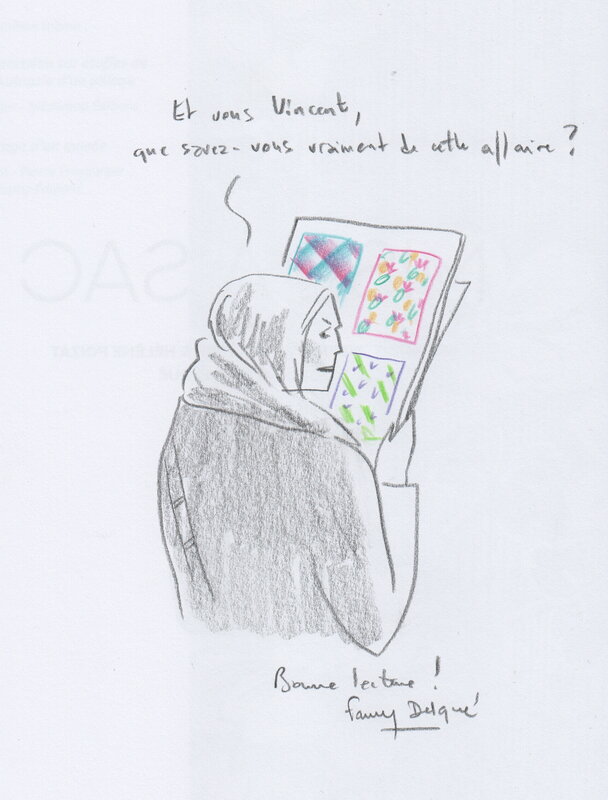 Et vous Vincent,
que savez-vous vraiment de cette affaire ?
Bonne lecture !
Fanny Delqué
SAC
HÉLÈNE POIZAT